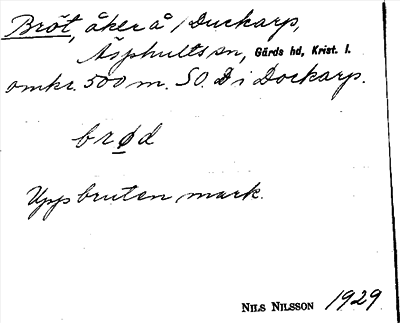 Bröt, åker å / Duckarp,
Äsphults sn, Gärds hd, Krist. l.
omkr. 500 m. SO. D i Dockarp.
brød
Uppbruten mark.
NILS NILSSON 1929